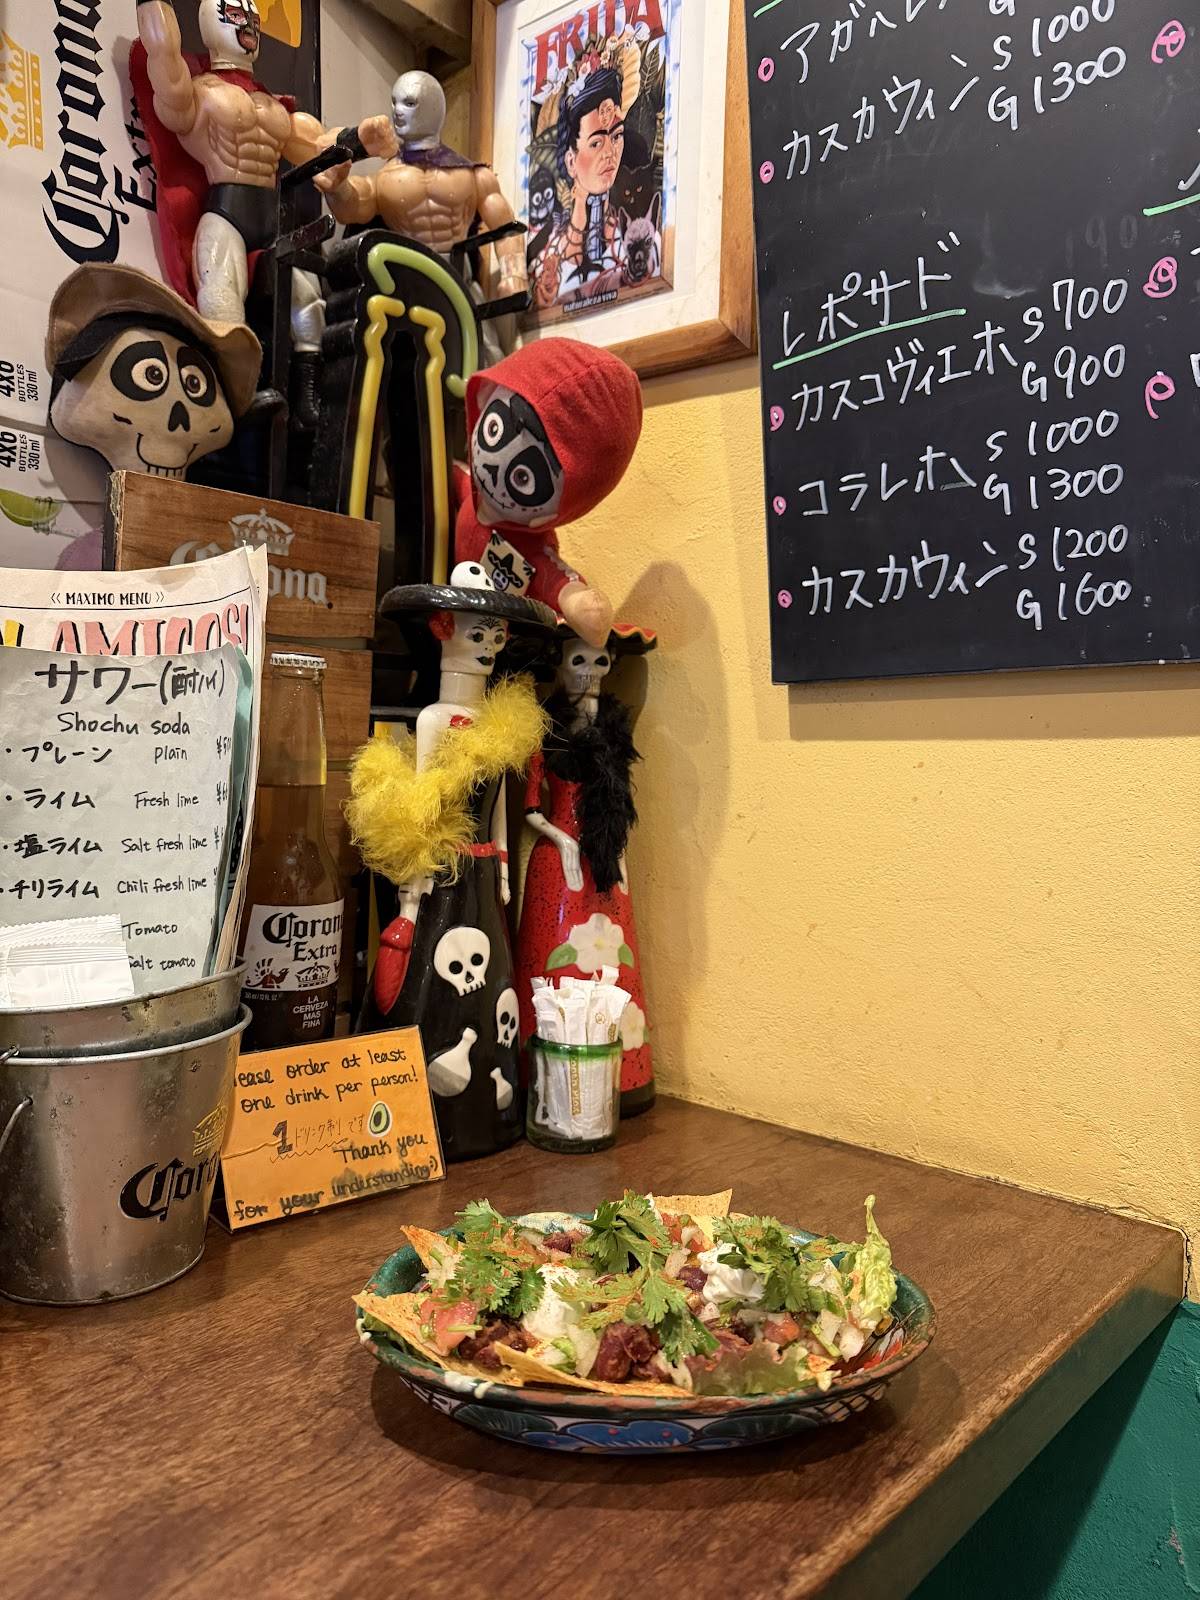 Corona
Extra
4X6
BOTTLES
330 ml
4X6
BOTTLES
330 ml
FRIDA
Corona
《 MAXIMO MENU 》
AMIGOS!
サワー(酎ハイ)
Shochu soda
・プレーン Plain
・ライム Fresh lime
・塩ライム Salt fresh lime
・チリライム Chili fresh lime
Tomato
Salt tomato
Corona
Extra
LA
CERVEZA
MAS
FINA
ease order at least
one drink per person!
1ドリンク制です
Thank you
for your understanding:)
S 1000
カスカウィン G 1300
レポサド
カスコヴィエホ S 700
G 900
コラレホ S 1000
G 1300
カスカウィン S 1200
G 1600